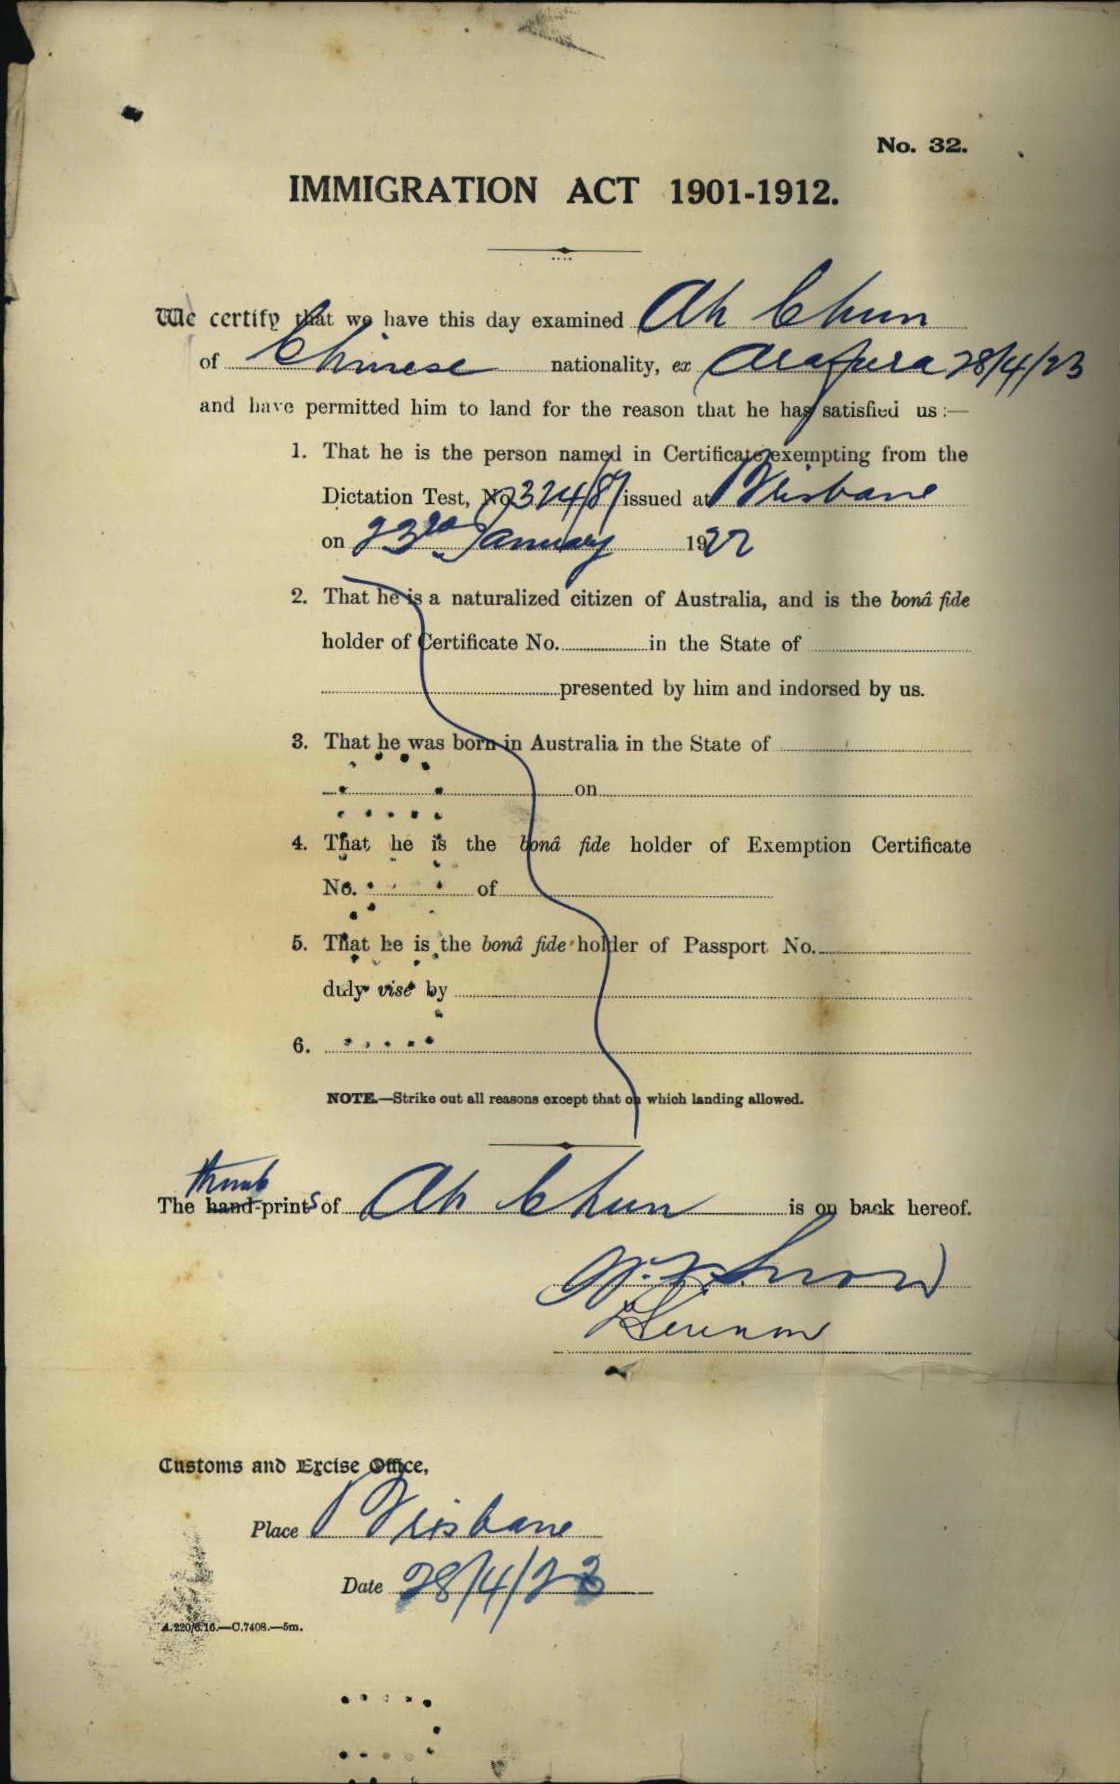 No. 32.
IMMIGRATION ACT 1901-1912.
We certify that we have this day examined Ah Chun
of Chinese nationality, ex Arafura 28/4/23
and have permitted him to land for the reason that he has satisfied us :—
1. That he is the person named in Certificate exempting from the
Dictation Test, No. 324/81 issued at Brisbane
on 23rd January 1922
2. That he is a naturalized citizen of Australia, and is the bonâ fide
holder of Certificate No. in the State of
presented by him and indorsed by us.
3. That he was born in Australia in the State of
on
4. That he is the bonâ fide holder of Exemption Certificate
No. of
5. That he is the bonâ fide holder of Passport No.
duly visé by
6.
NOTE.—Strike out all reasons except that on which landing allowed.
thumb
The hand-prints of Ah Chun is on back hereof.
Customs and Excise Office,
Place Brisbane
Date 28/4/23
A.220/6.16.—C.7408.—5m.